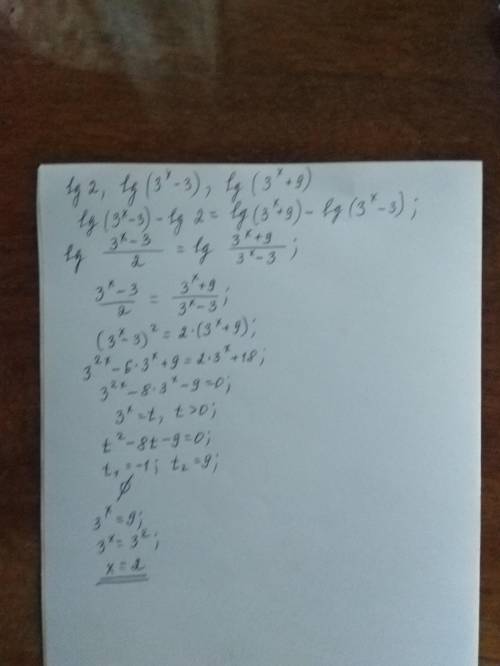 lg 2, lg(3^x-3), lg(3^x+9)
lg(3^x-3)-lg 2=lg(3^x+9)-lg(3^x-3);
lg (3^x-3)/2 = lg (3^x+9)/(3^x-3);
(3^x-3)/2 = (3^x+9)/(3^x-3);
(3^x-3)^2=2·(3^x+9);
3^2x-6·3^x+9=2·3^x+18;
3^2x-8·3^x-9=0;
3^x=t, t>0;
t^2-8t-9=0;
t₁=-1; t₂=9;
∅
3^x=9;
3^x=3^2;
x=2